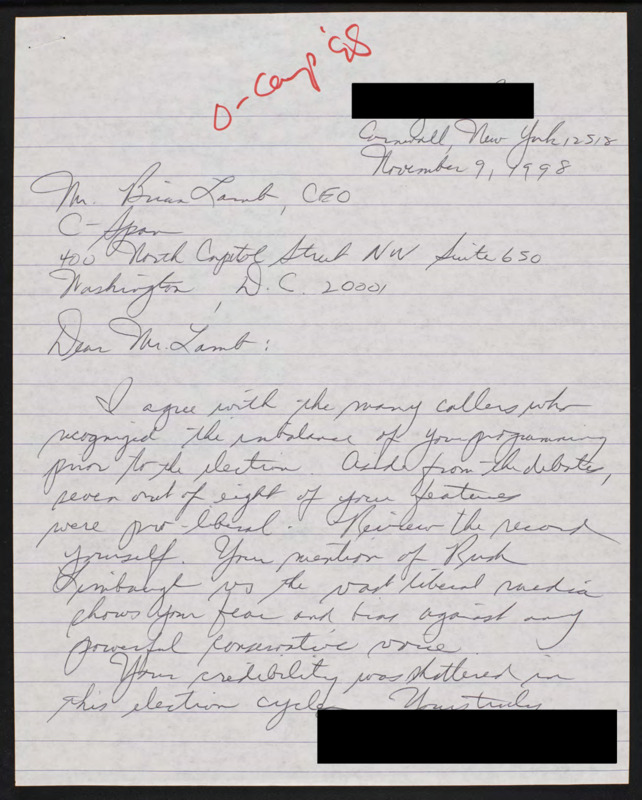 O-Camp '98
Cornwall, New York, 12518
November 9, 1998
Mr. Brian Lamb, CEO
C-Span
400 North Capitol Street NW Suite 650
Washington, D.C. 20001
Dear Mr. Lamb:
I agree with the many callers who
recognized the imbalance of your programming
prior to the election. Aside from the debates,
seven out of eight of your features
were pro-liberal. Review the record
yourself. Your mention of Rush
Limbaugh vs the vast liberal media
shows your fear and bias against any
powerful conservative voice.
Your credibility was shattered in
this election cycle. Yours truly